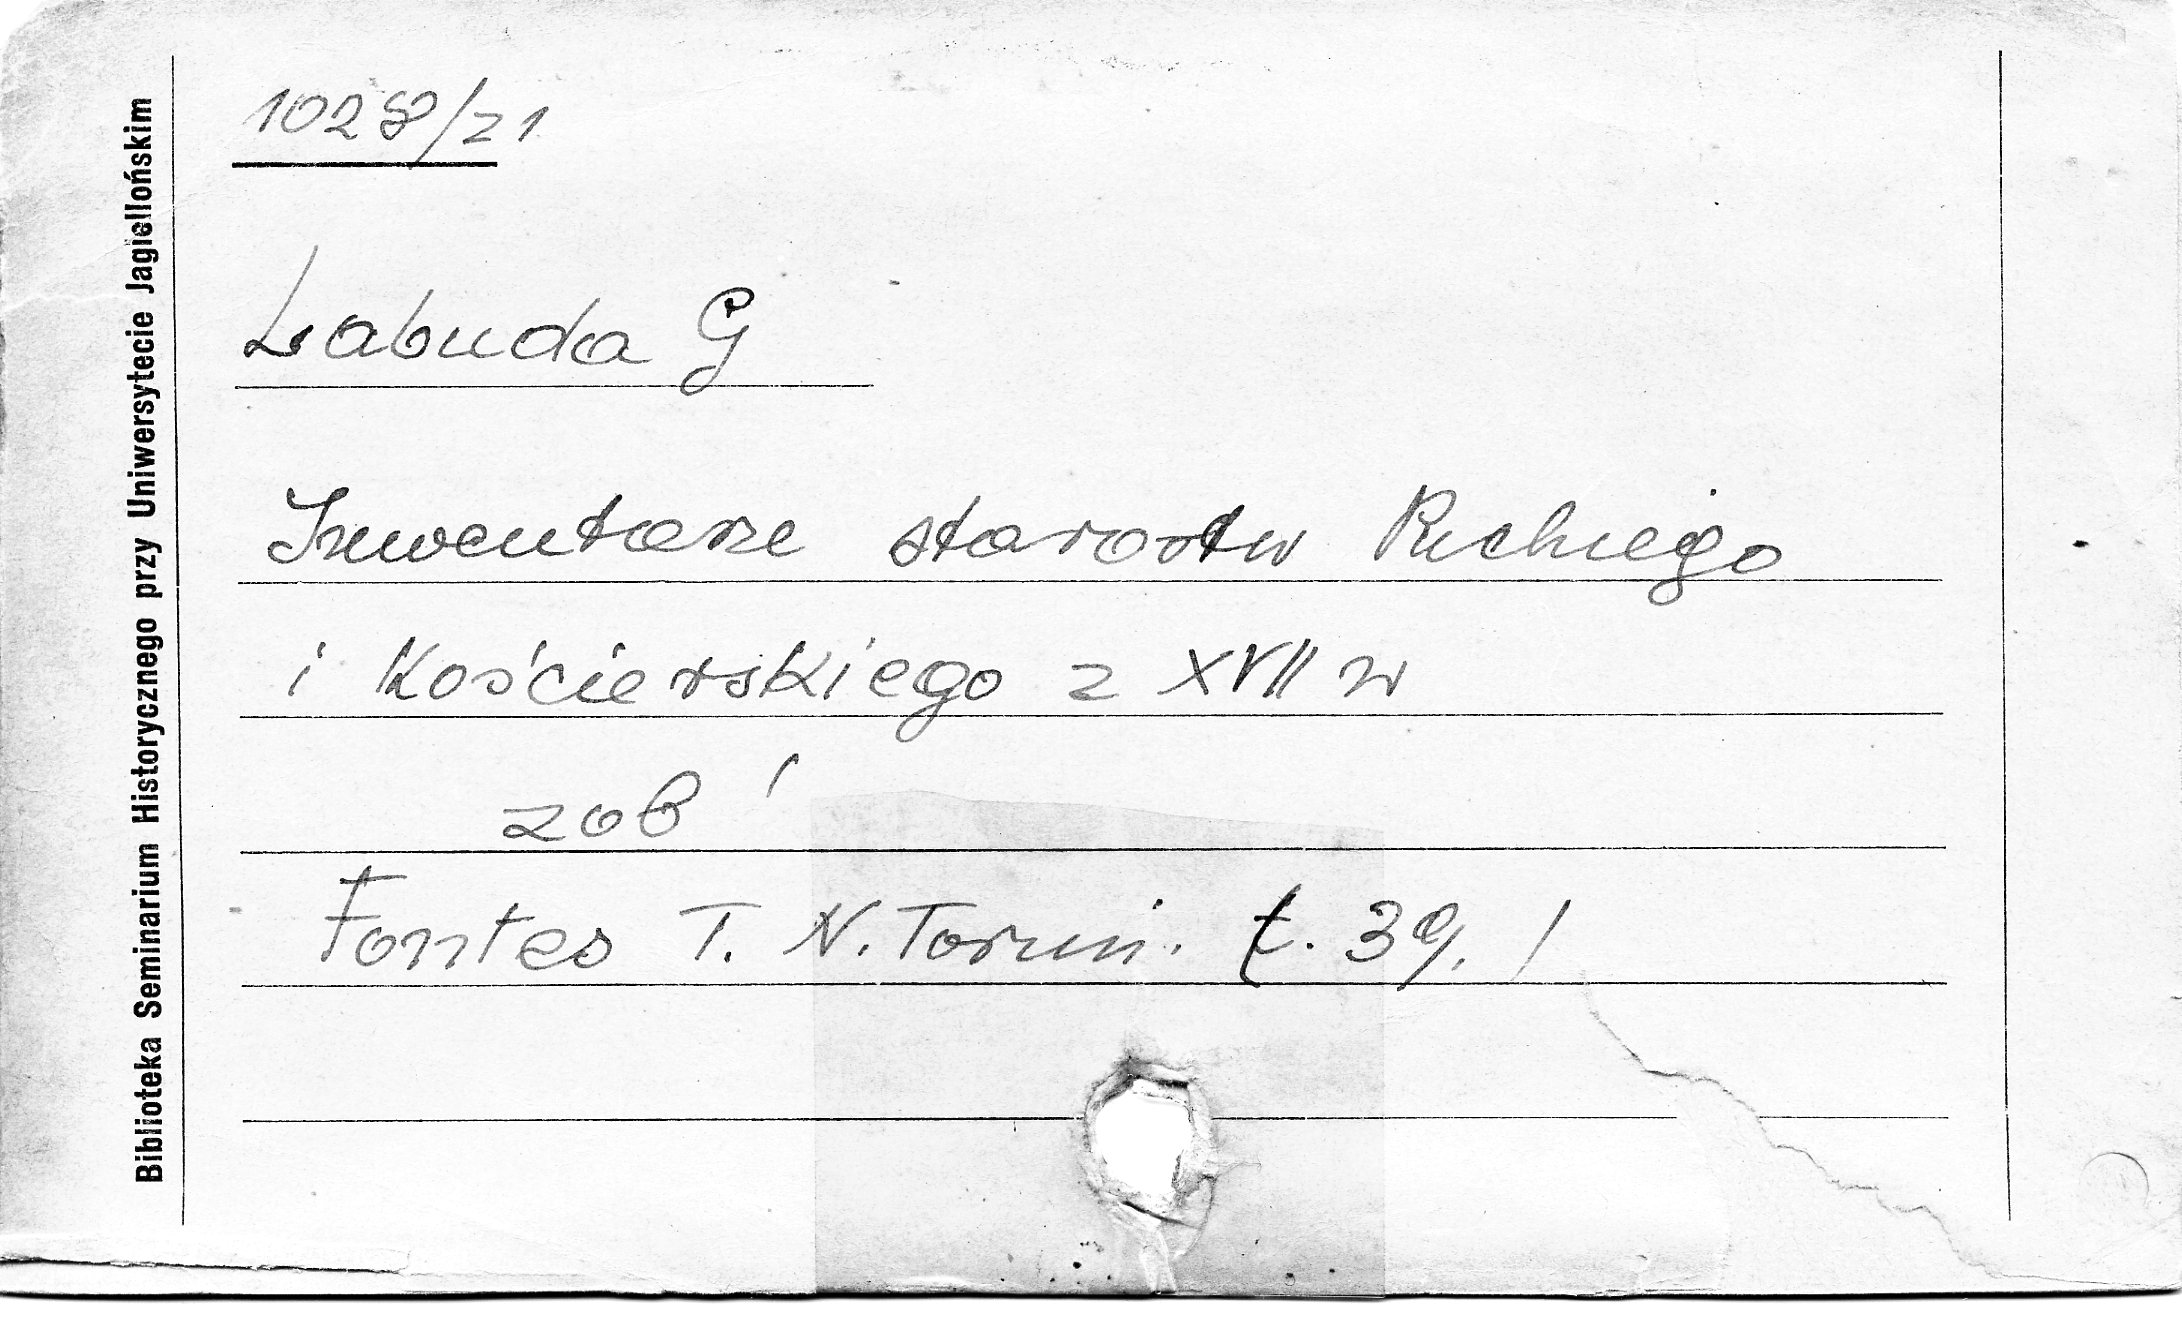 Biblioteka Seminarium Historycznego przy Uniwersytecie Jagiellońskim
1028/z1
Labuda G
Inwentarze starostw Puckiego
i Kościerskiego z XVII w
zob
Fontes T. N. Toruń. t. 39. /